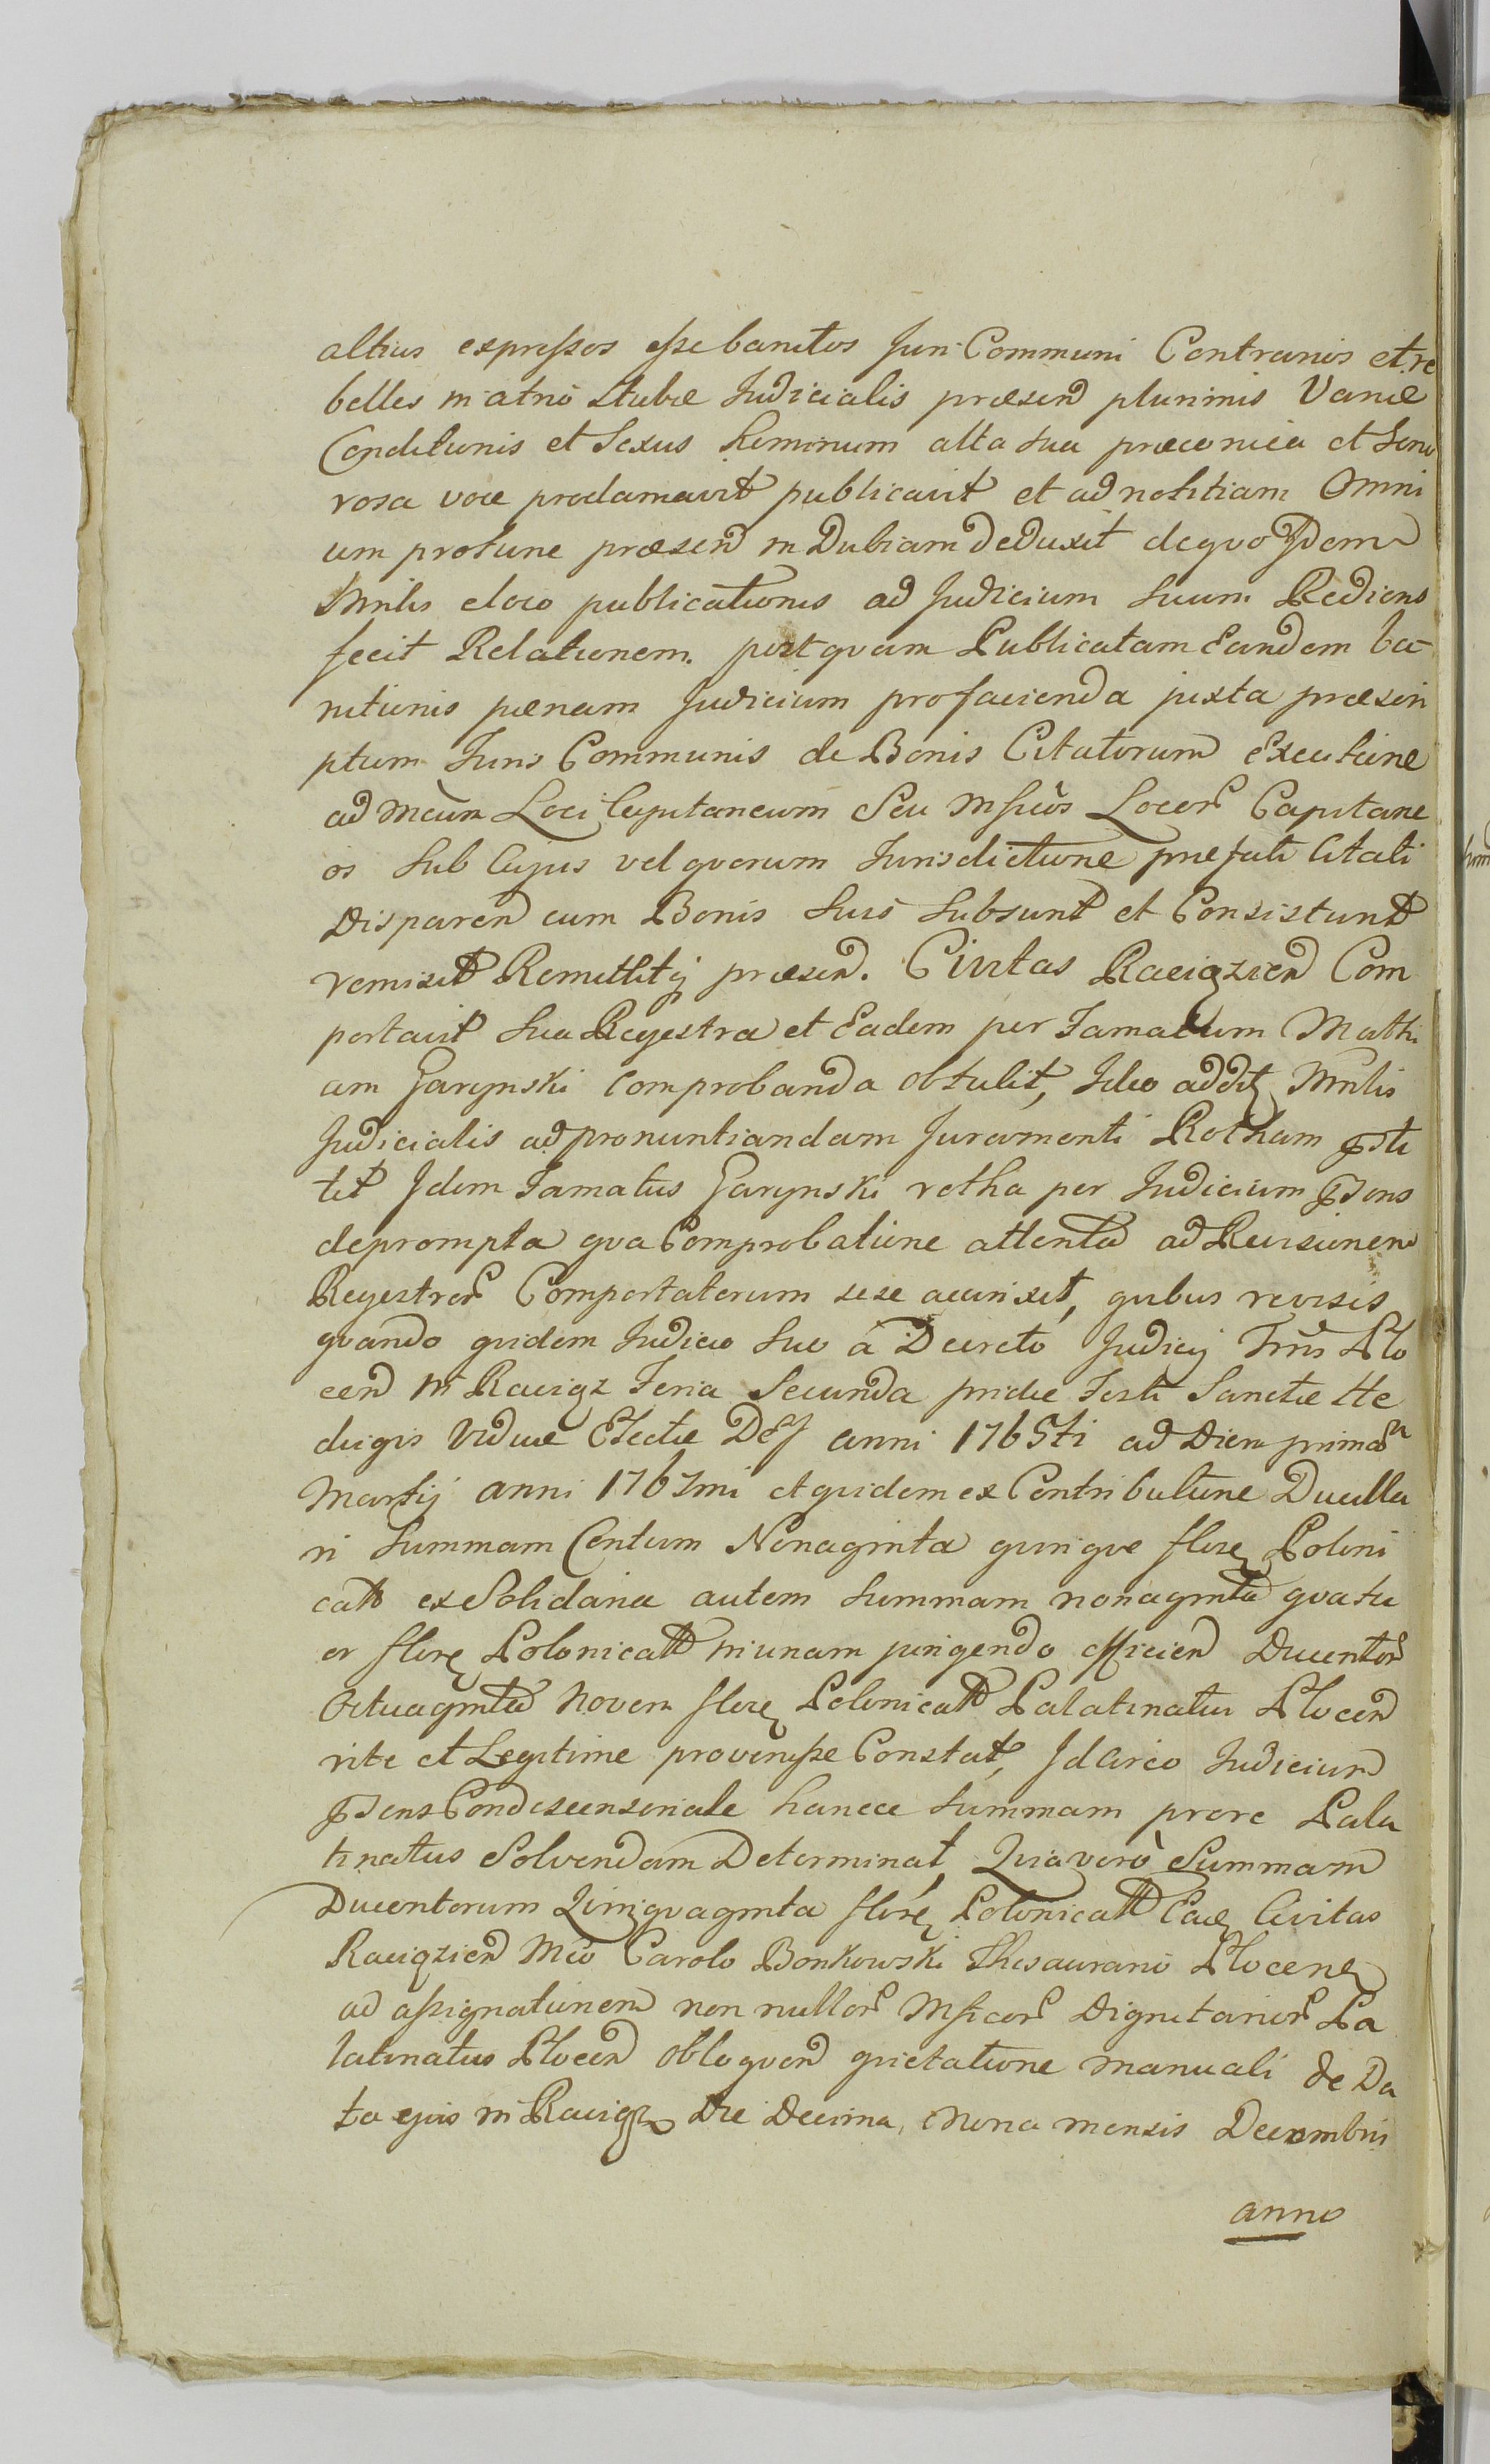 altius expressos esse banitos Juri Communi Contrarios et re
belles in atrio Stubæ Judicialis præsend plurimis Variæ
Conditionis et Sexus hominum alta sua præconica et Sono
rosa voce proclamavit publicavit et ad notitiam Omni
um protunc præsend in Dubiam deduxit de quo Jdem
Mnlis e loco publicationis ad Judicium Suum Rediens
fecit Relationem. post quam Publicatam Eandem ba-
nitionis pænam Judicium pro facienda juxta præscri
ptum Juris Communis de Bonis Citatorum Executione
ad Mcum Loci Capitaneum Seu Mficos Locor Capitane
os Sub Cujus vel quorum Jurisdictione præfati Citati
Disparend cum Bonis Suis Subsunt et Consistunt
remisit Remittitq præsend. Civitas Raciązend Com
portavit Sua Regestra et Eadem per Famatum Mathi
am Garynski Comprobanda obtulit, Ideo addit Mnlis
Judicialis ad pronuntiandam Juramenti Rotham psti
tit Jdem Famatus Garynski rotha per Judicium psens
deprompta qua Comprobatione attenta ad Revisionem
Regestror Comportatorum sese accinxit, quibus revisis
quando quidem Judicio Suo á Decreto Judicij Trris Plo
cend in Raciąz Feria Secunda pridie Festi Sanctæ He
dvigis Viduæ Electæ Dej anni 1765ti ad Diem primam
Martij anni 1767mi et quidem ex Contributione Ducilla
ri Summam Centum Nonaginta quinque flore Poloni
catt ex Solidaria autem Summam nonaginta quatu
or flore Polonicatt in unam jungendo efficiend Ducentor
Octuaginta Novem flore Polonicatt Palatinatui Plocend
rite et Legitime provenisse Constat, Jdcirco Judicium
psens Condescensoriale hancce Summam pro re Pala
tinatus Solvendam Determinat, Quia verò Summam
Ducentorum Quinquaginta flore Polonicatt Eade Civitas
Raciązend Mco Carolo Bonkowski Thesaurario Plocene
ad assignationem non nullor Mficor Dignitarior Pa
latinatus Plocend obloquend quietatione manuali de Da
ta ejus in Raciąz Die Decima, Nona mensis Decembris
anno